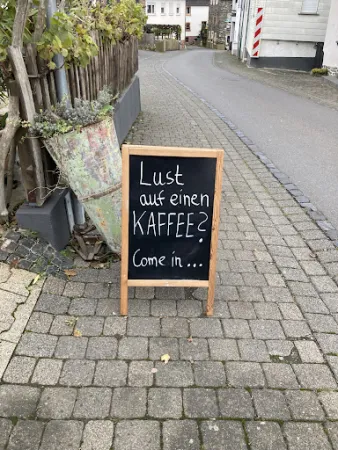 Lust
auf einen
KAFFEE?
Come in...